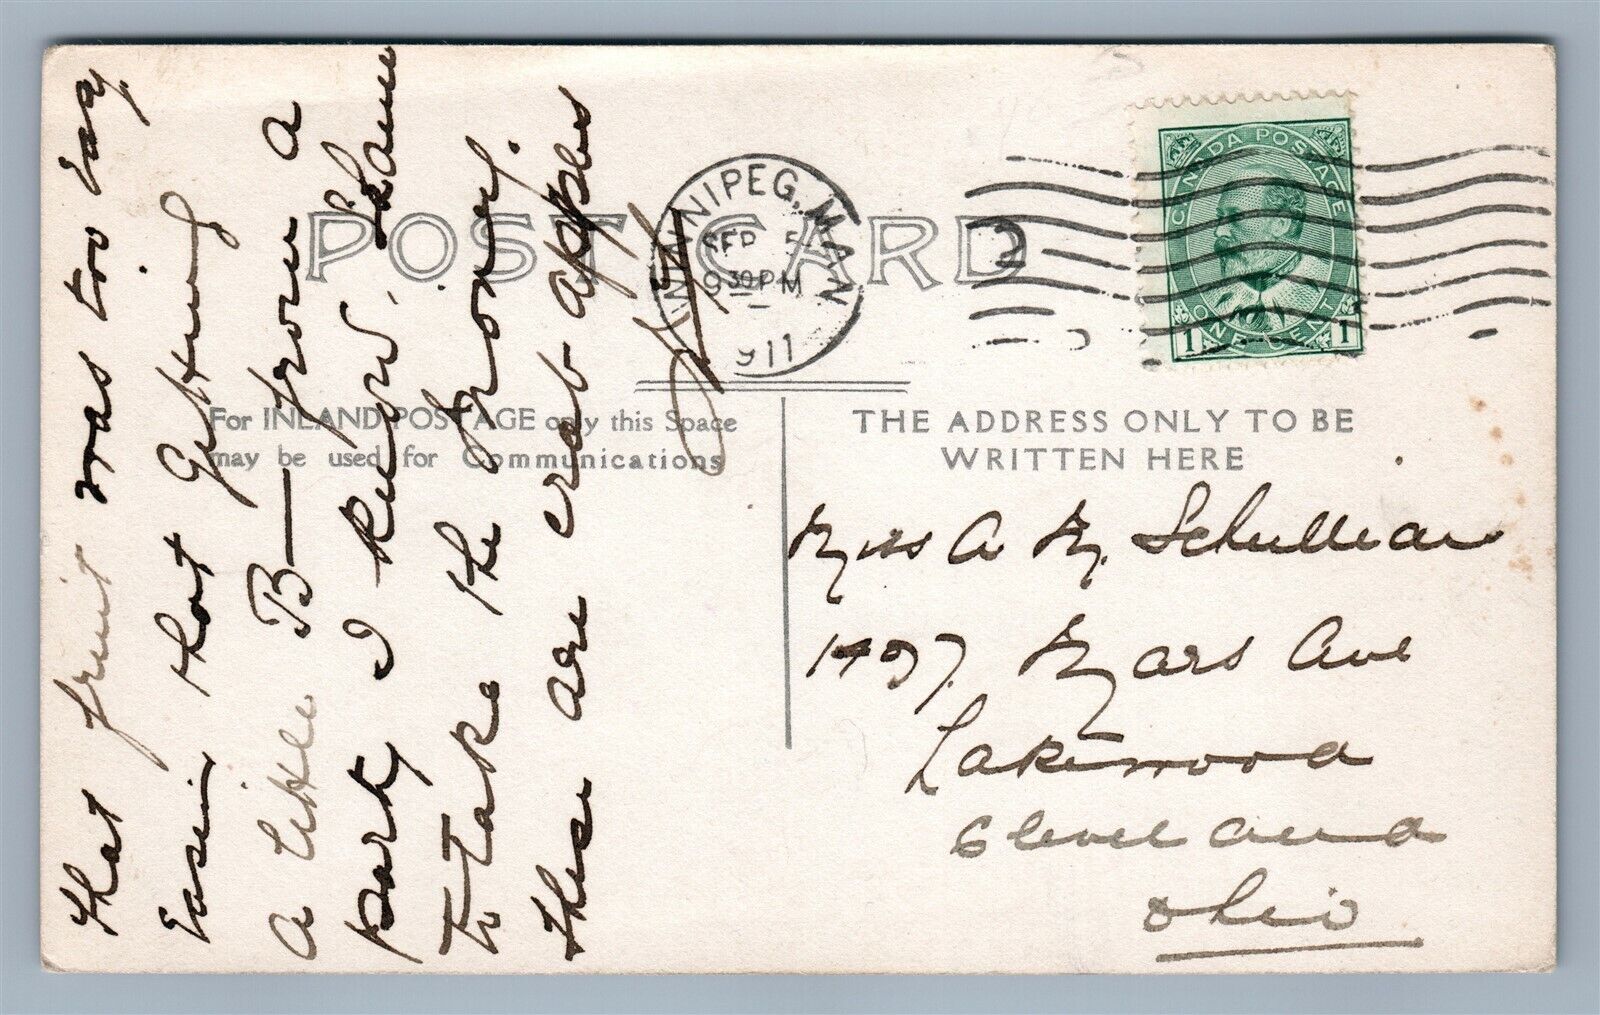 POST CARD
WINNIPEG, MAN
SEP 5
9 30 PM
1911
2
CANADA POSTAGE
ONE CENT
1 1
For INLAND POSTAGE only this Space
may be used for Communications
THE ADDRESS ONLY TO BE
WRITTEN HERE
That fruit was too easy
Easier that getting
a little B— from a
party I know. Shame
to take the money.
These are crab apples
Miss A M. Schullian
1497. Mars Ave
Lakewood
Cleveland
Ohio